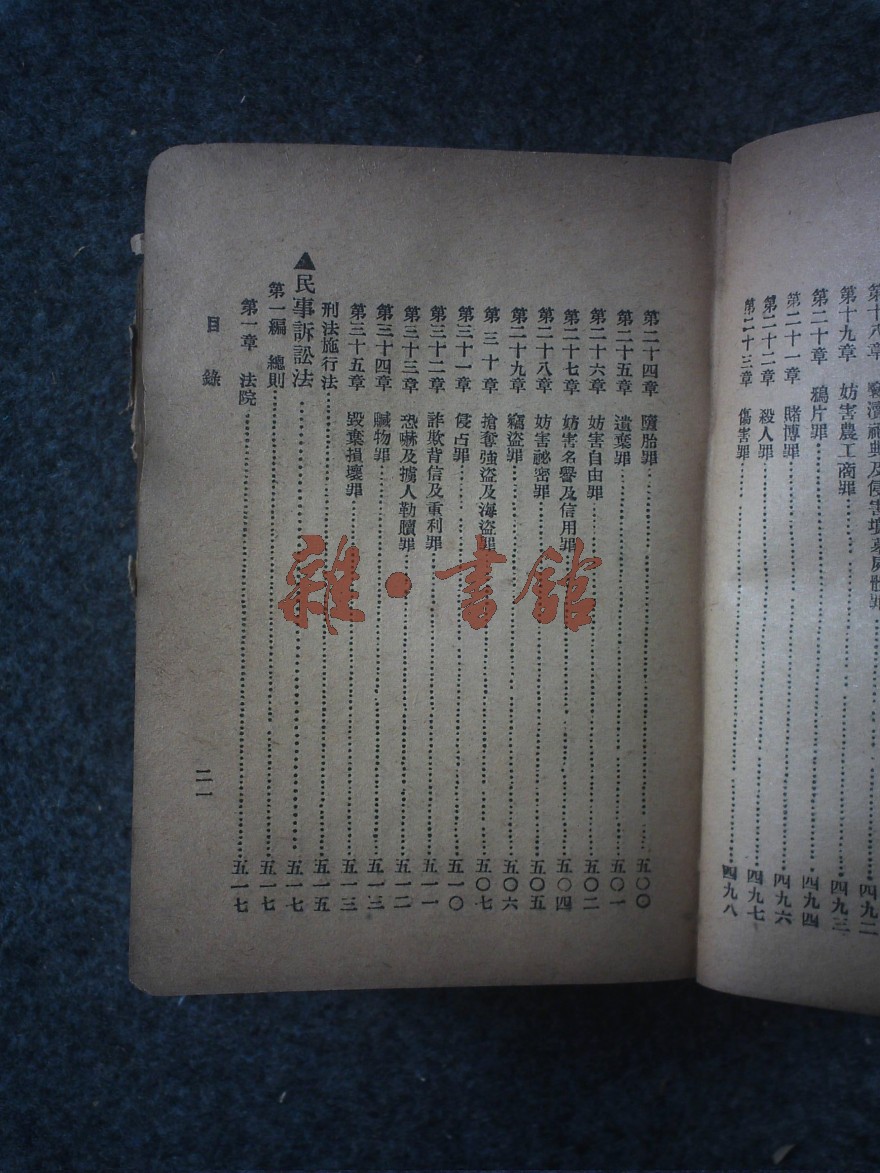 第十八章 褻瀆祀典及侵害墳墓屍體罪 四九二
第十九章 妨害農工商罪 四九三
第二十章 鴉片罪 四九四
第二十一章 賭博罪 四九六
第二十二章 殺人罪 四九七
第二十三章 傷害罪 四九八
第二十四章 墮胎罪 五〇〇
第二十五章 遺棄罪 五〇一
第二十六章 妨害自由罪 五〇二
第二十七章 妨害名譽及信用罪 五〇四
第二十八章 妨害祕密罪 五〇五
第二十九章 竊盜罪 五〇六
第三十章 搶奪強盜及海盜罪 五〇七
第三十一章 侵占罪 五一〇
第三十二章 詐欺背信及重利罪 五一一
第三十三章 恐嚇及擄人勒贖罪 五一二
第三十四章 贓物罪 五一三
第三十五章 毀棄損壞罪 五一三
刑法施行法 五一五
▲民事訴訟法 五一七
第一編 總則 五一七
第一章 法院 五一七
目錄 二一
雜·書館